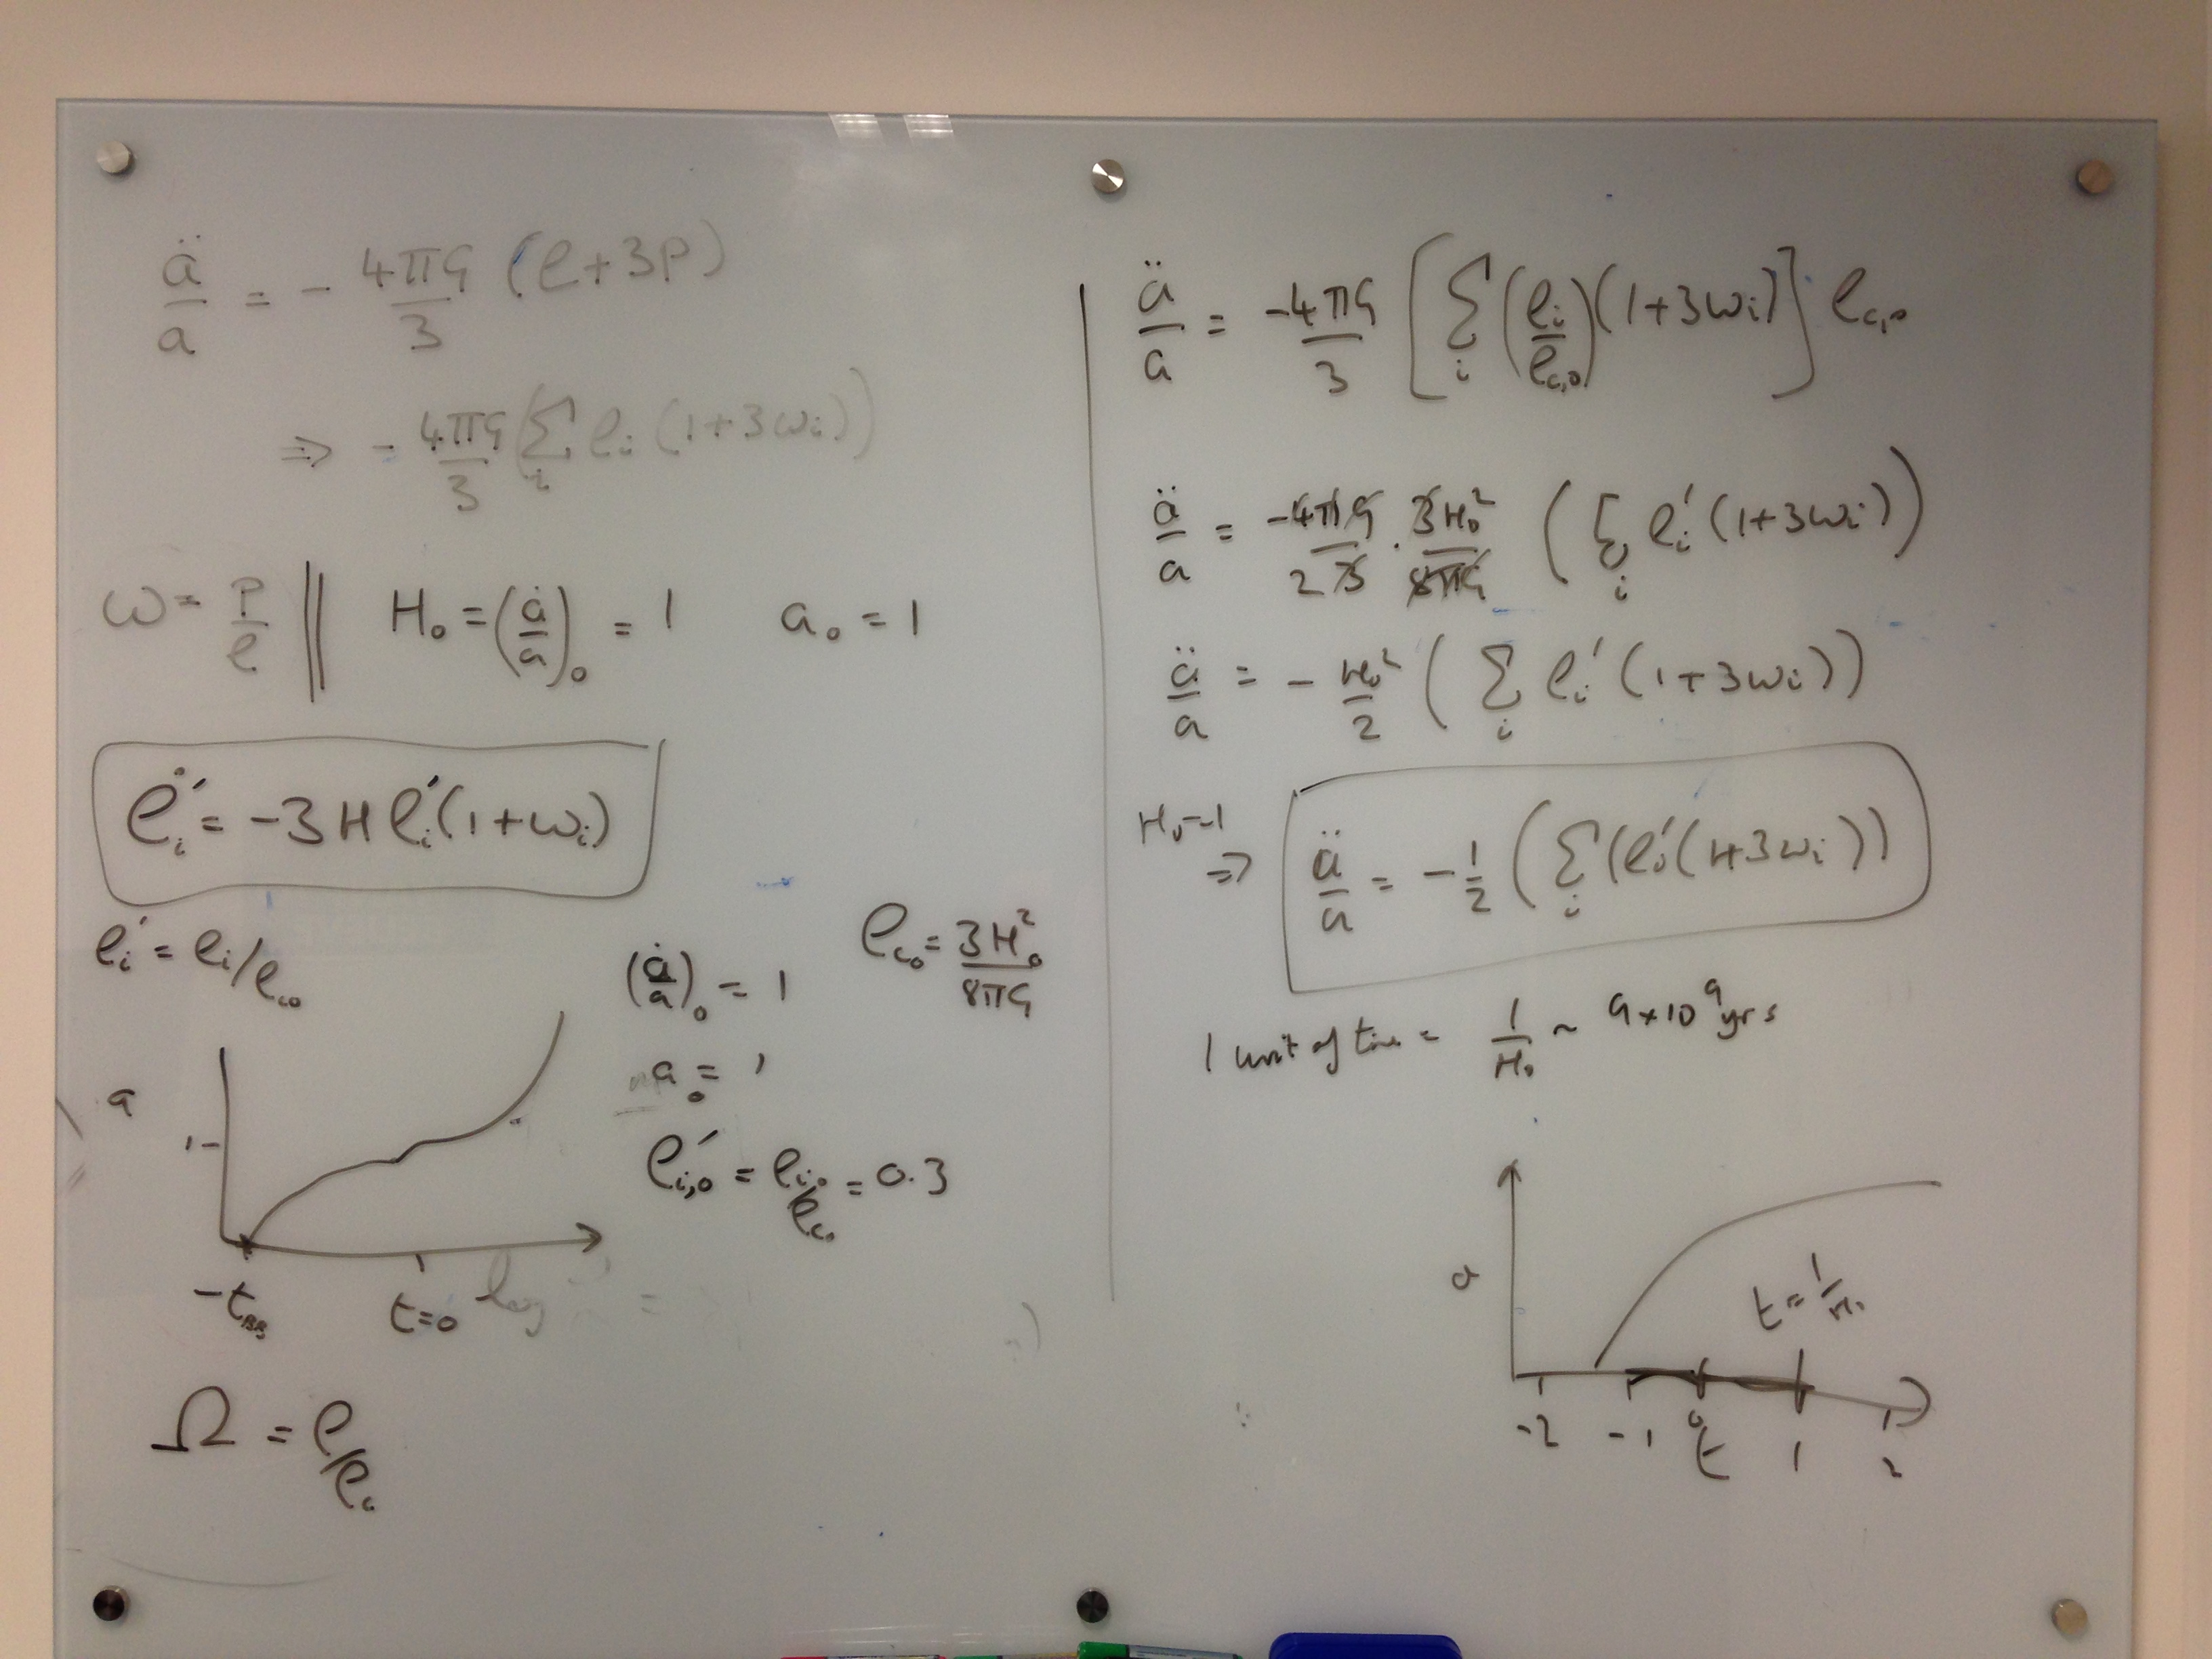 ä/a = - 4πG/3 (ρ+3P)
⇒ - 4πG/3 (∑_i ρ_i (1+3ω_i))
ω = P/ρ || H_0 = (ȧ/a)_0 = 1 a_0 = 1
ρ̇'_i = -3Hρ'_i(1+ω_i)
ρ'_i = ρ_i/ρ_c0
(ȧ/a)_0 = 1 ρ_c0 = 3H_0^2/8πG
a_0 = 1
ρ'_i,0 = ρ_i,0/ρ_c0 = 0.3
a
1-
-t_BB t=0
Ω = ρ/ρ_c
ä/a = -4πG/3 [∑_i (ρ_i/ρ_c,0)(1+3ω_i)] ρ_c,0
ä/a = -4πG/2 3 · 3H_0^2/8πG (∑_i ρ'_i (1+3ω_i))
ä/a = - H_0^2/2 (∑_i ρ'_i (1+3ω_i))
H_0=1
⇒ ä/a = -1/2 (∑_i (ρ'_i(1+3ω_i))
1 unit of time = 1/H_0 ~ 9×10^9 yrs
a
t = 1/H_0
-2 -1 0 1 2
t